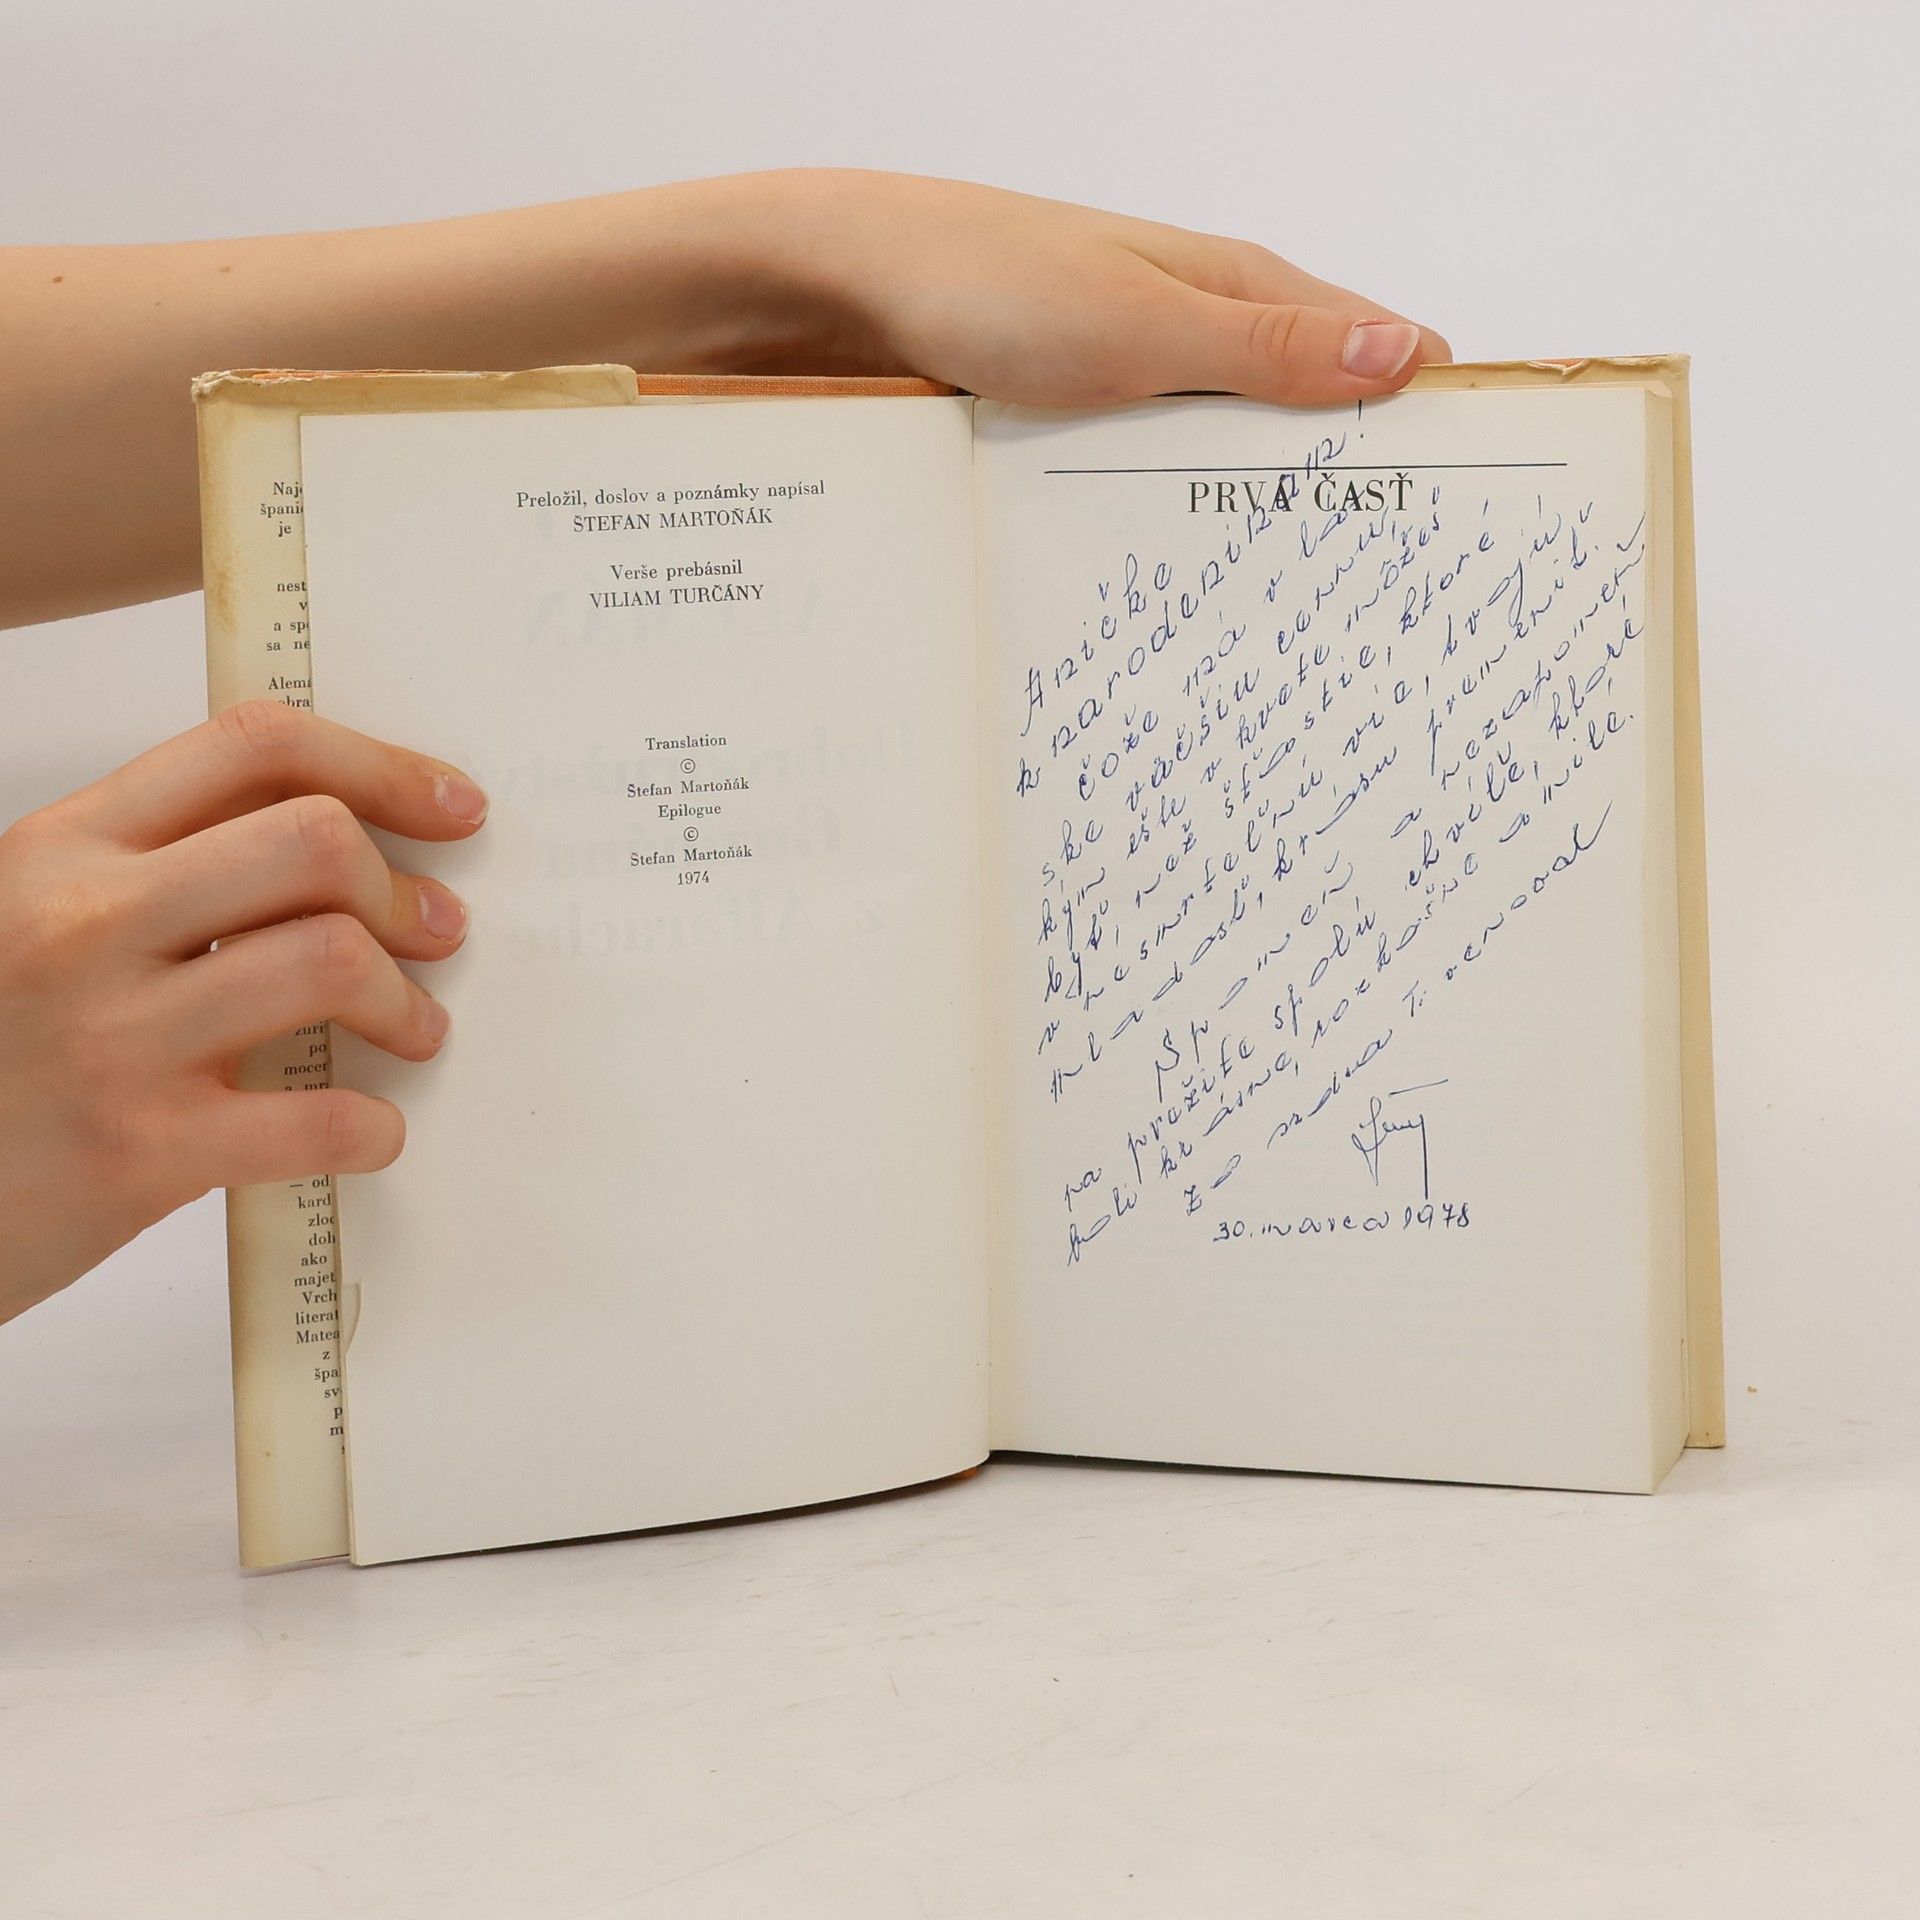 Naj
špani
je
nest
v
a sp
sa ne
Alemá
obra
zuri
po
mocer
a mr
— od
kard
zloc
doh
ako
majet
Vrch
literat
Matea
z
špa
sv
p
m
Preložil, doslov a poznámky napísal
ŠTEFAN MARTOŇÁK
Verše prebásnil
VILIAM TURČÁNY
Translation
©
Štefan Martoňák
Epilogue
©
Štefan Martoňák
1974
PRVÁ ČASŤ
Aničke
k narodeninám!
Čože má v lá-
ske väčšiu cenu,
kým ešte v kvete môžeš
byť, než šťastie, ktoré
v nesmrteľnú vie, tvoju
mladosť, krásu premeniť.
Spomeň a nezapomeň
na prežité spolu chvíle, ktoré
boli krásne, rozkošné a milé.
Zo srdca Ti venoval
30. marca 1978